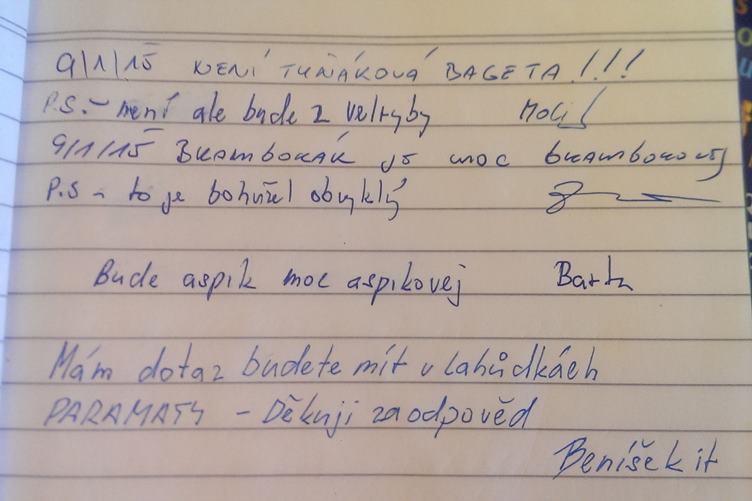 9/1/15 NENÍ TUŇÁKOVÁ BAGETA!!!
P.S.- není ale bude z velryby
9/1/15 BRAMBORÁK JE MOC BRAMBOROVEJ
P.S - to je bohužel obvyklý
Bude aspik moc aspikovej Barta
Mám dotaz budete mít v lahůdkách
PARAMATY - Děkuji za odpověd
Beníšek it